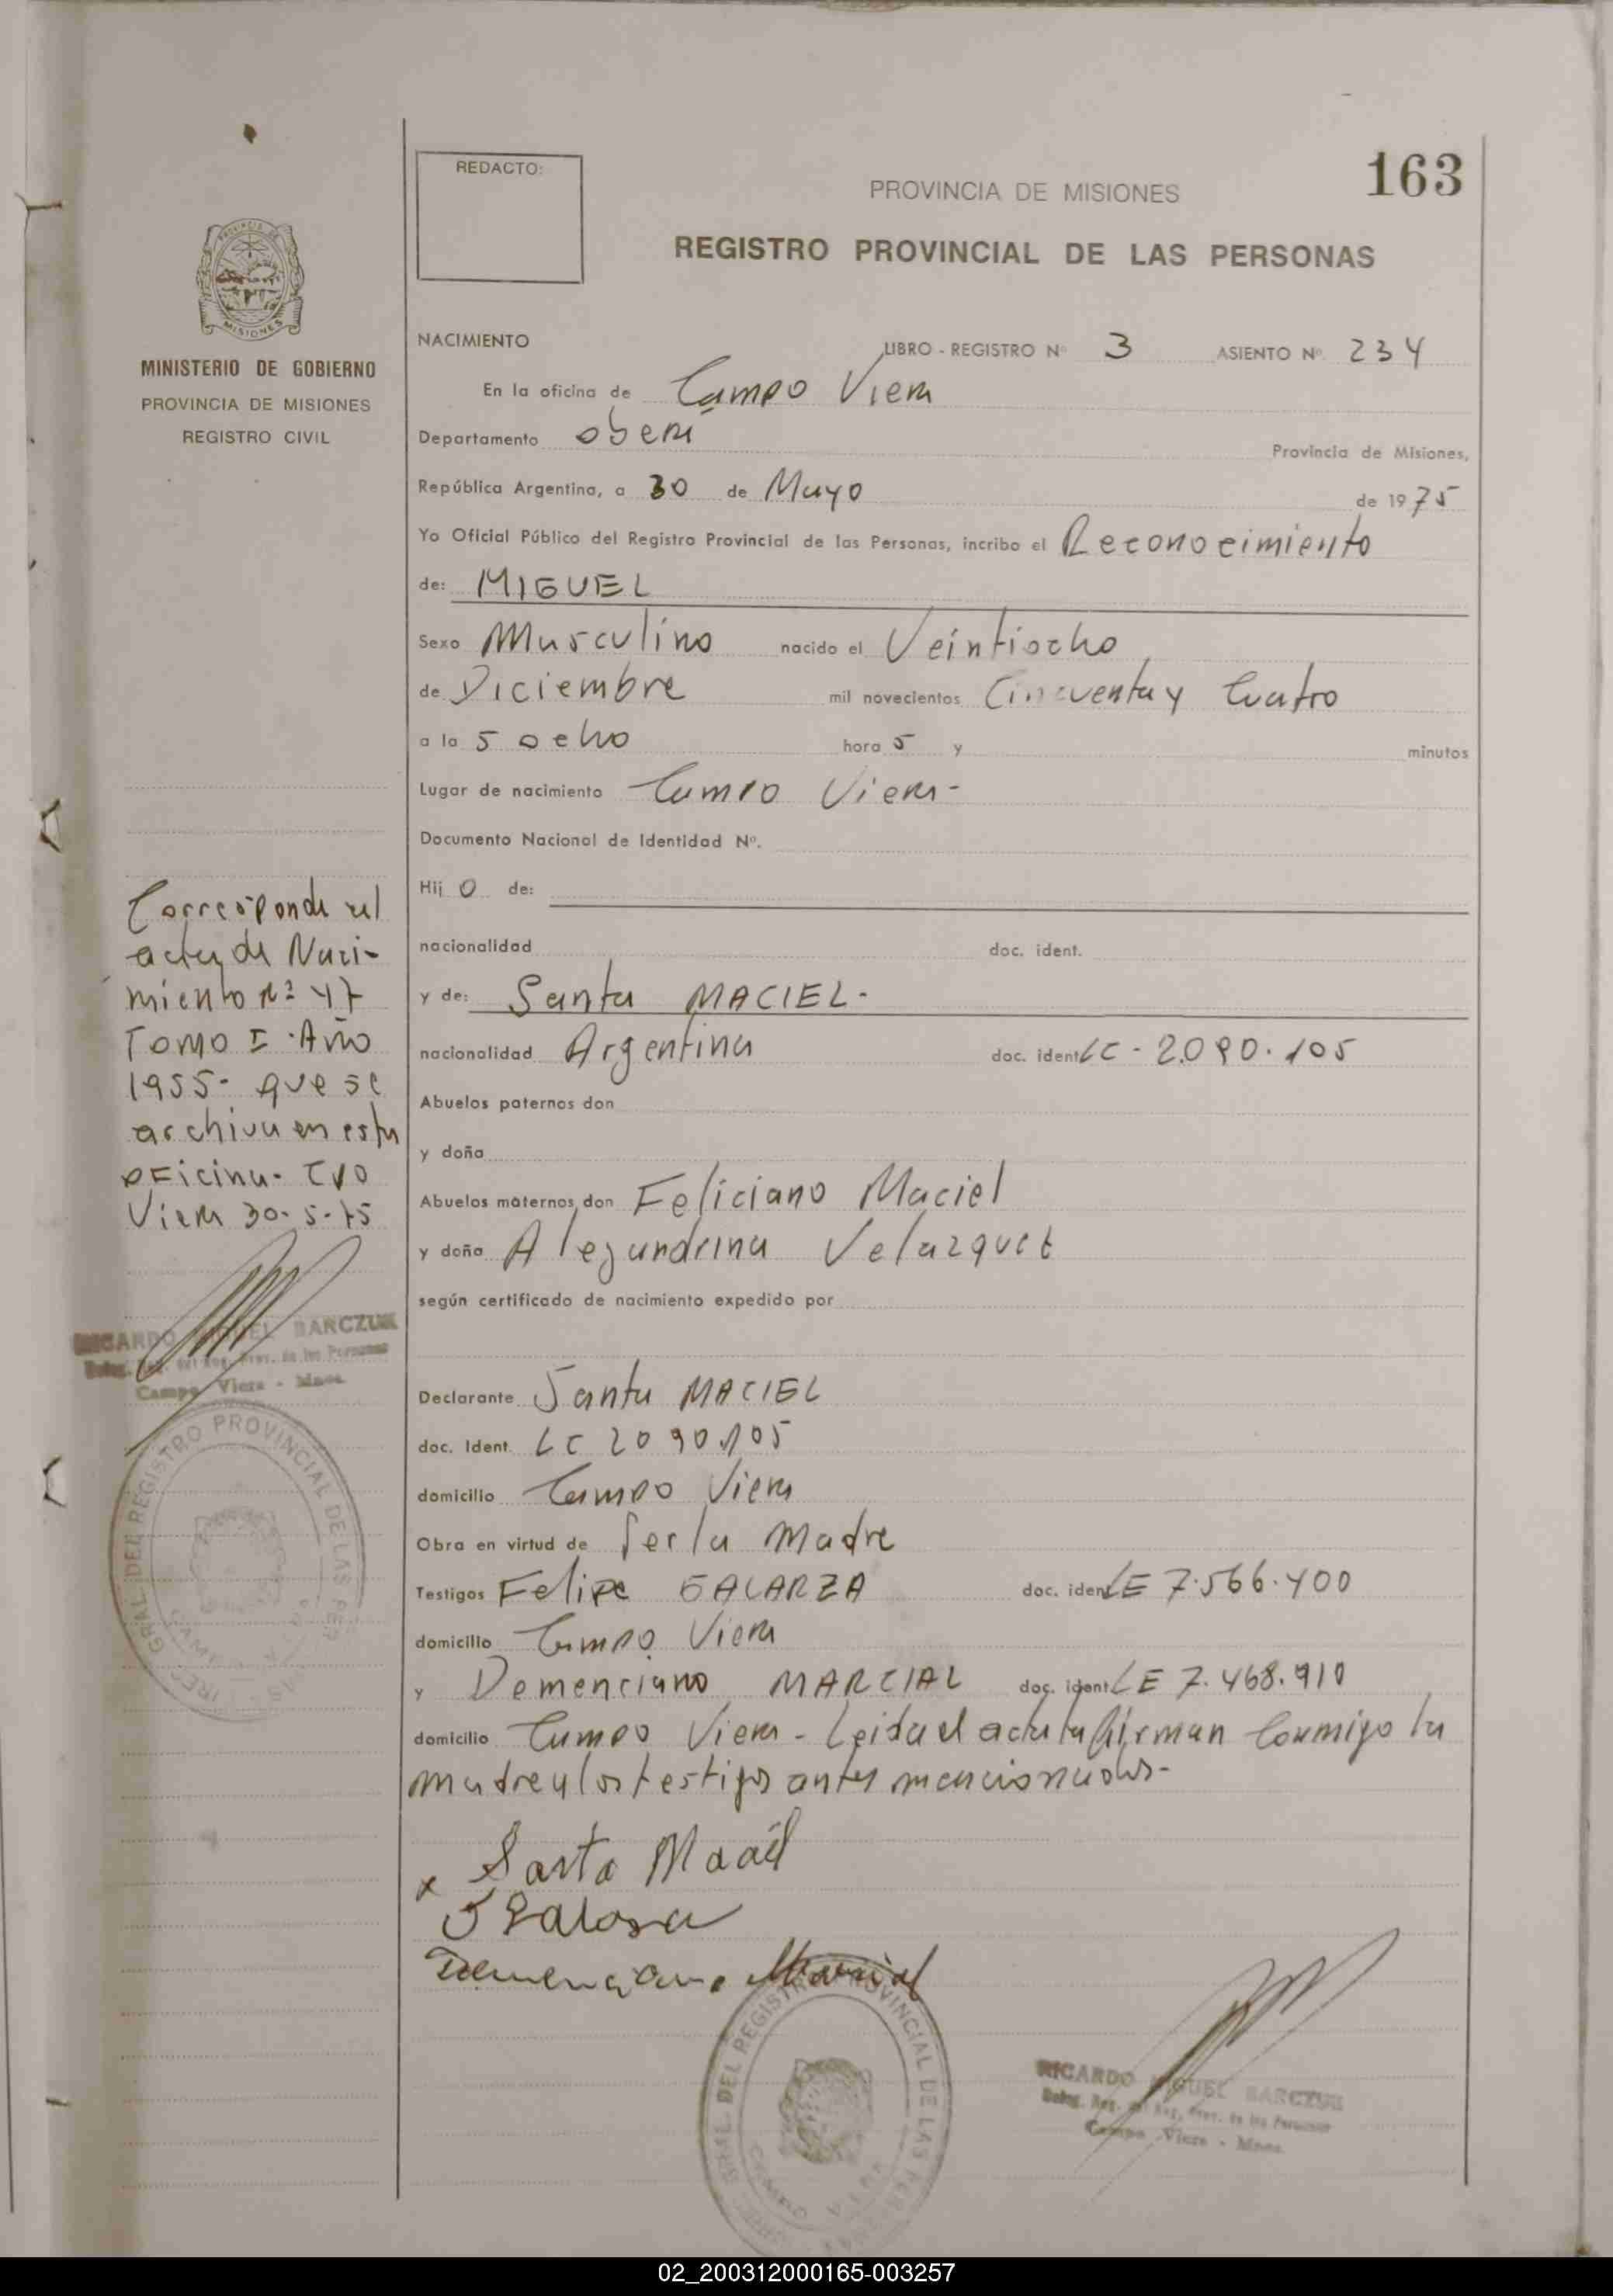 163
REDACTO:
PROVINCIA DE MISIONES
REGISTRO PROVINCIAL DE LAS PERSONAS
MINISTERIO DE GOBIERNO
PROVINCIA DE MISIONES
REGISTRO CIVIL
NACIMIENTO LIBRO - REGISTRO Nº 3 ASIENTO Nº 234
En la oficina de Campo Viera
Departamento oberá Provincia de Misiones,
República Argentina, a 30 de Mayo de 1975
Yo Oficial Público del Registro Provincial de las Personas, incribo el Reconocimiento
de: MIGUEL
Sexo Masculino nacido el Veintiocho
de Diciembre mil novecientos Cincuenta y Cuatro
a la s ocho hora s y minutos
Lugar de nacimiento Campo Viera-
Documento Nacional de Identidad Nº.
Hij o de:
nacionalidad doc. ident.
y de: Santa MACIEL-
nacionalidad Argentina doc. ident LC - 2.090.105
Abuelos paternos don
y doña
Abuelos maternos don Feliciano Maciel
y doña Alejandrina Velazquez
según certificado de nacimiento expedido por
Declarante Santa MACIEL
doc. Ident. LC 2090.105
domicilio Campo Viera
Obra en virtud de Ser la Madre
Testigos Felipe GALARZA doc. ident LE 7.566.400
domicilio Campo Viera
y Demenciano MARCIAL doc. ident LE 7.468.910
domicilio Campo Viera - Leida el acta la firman Conmigo la
madre y los testigos antes mencionados-
x Santa Maciel
Demenciano Marcial
Corresponde al
acta de Naci-
miento nº 47
Tomo I. Año
1955- que se
archiva en esta
oficina- Cpo
Viera 30-5-75
RICARDO MIGUEL BARCZUK
Campo Viera - Mnes.
GRAL DEL REGISTRO PROVINCIAL DE LAS PER
GRAL. DEL REGISTRO PROVINCIAL DE LAS PER
CAMPO VIERA
RICARDO MIGUEL BARCZUK
Campo Viera - Mnes.
02_200312000165-003257